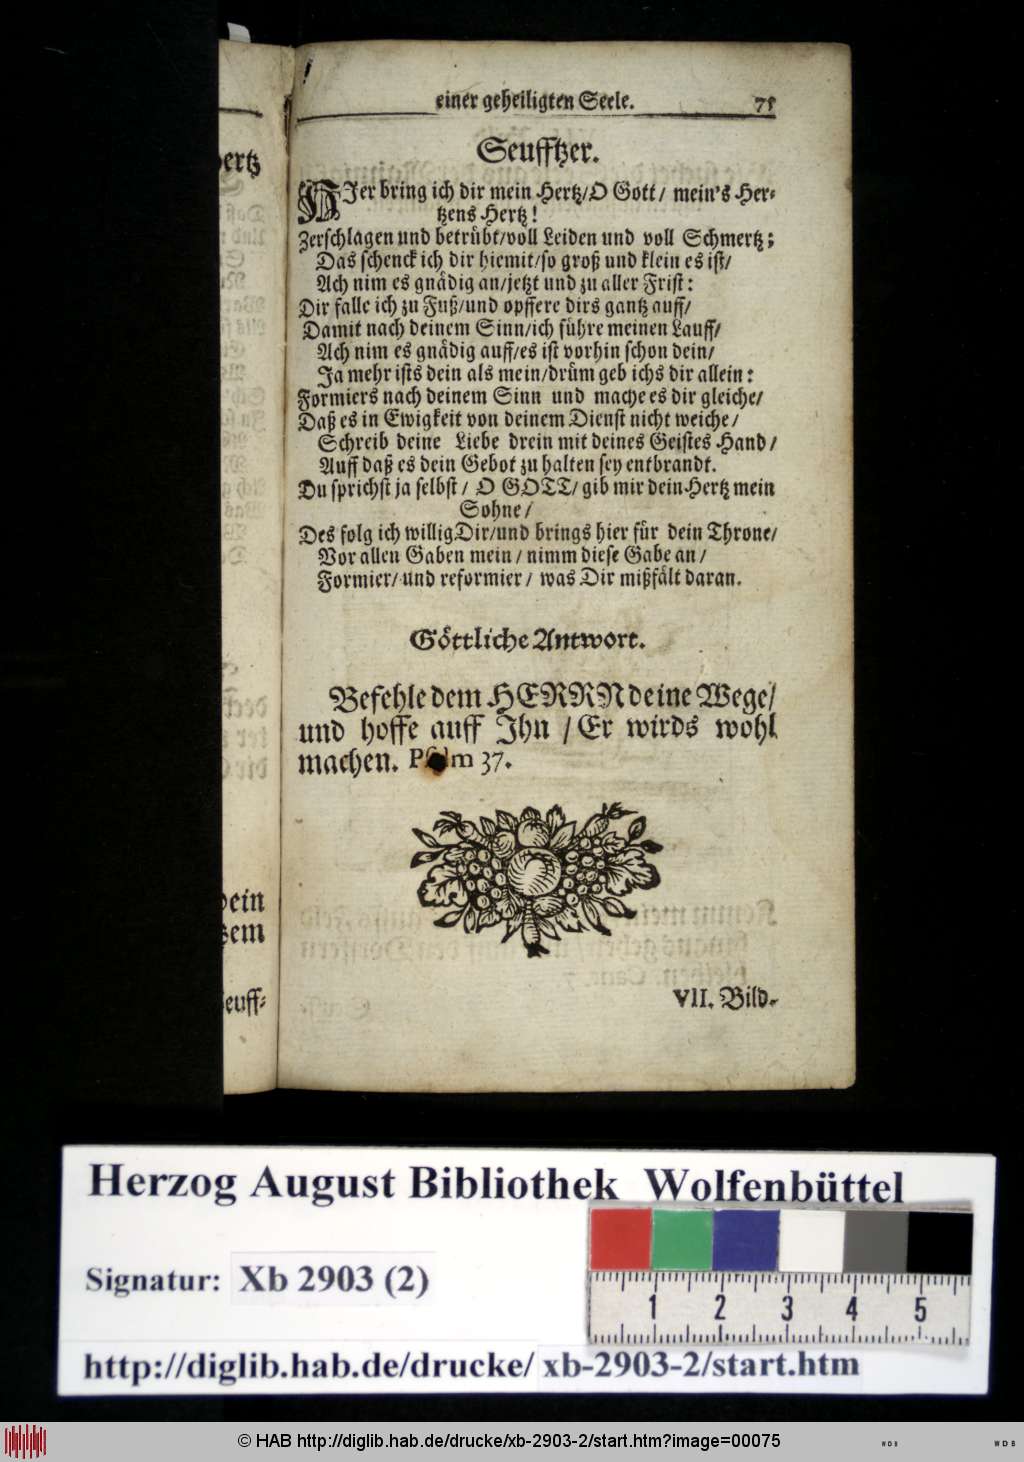 einer geheiligten Seele. 75
Seufftzer.
HJer bring ich dir mein Hertz/O Gott/ mein's Her-
tzens Hertz!
Zerschlagen und betrübt/voll Leiden und voll Schmertz;
Das schenck ich dir hiemit/so groß und klein es ist/
Ach nim es gnädig an/jetzt und zu aller Frist:
Dir falle ich zu Fuß/und opffere dirs gantz auff/
Damit nach deinem Sinn/ich führe meinen Lauff/
Ach nim es gnädig auff/es ist vorhin schon dein/
Ja mehr ists dein als mein/drüm geb ichs dir allein:
Formiers nach deinem Sinn und mache es dir gleiche/
Daß es in Ewigkeit von deinem Dienst nicht weiche/
Schreib deine Liebe drein mit deines Geistes Hand/
Auff daß es dein Gebot zu halten sey entbrandt.
Du sprichst ja selbst/ O GOTT/ gib mir dein Hertz mein
Sohne/
Des folg ich willig Dir/und brings hier für dein Throne/
Vor allen Gaben mein/ nimm diese Gabe an/
Formier/ und reformier/ was Dir mißfält daran.
Göttliche Antwort.
Befehle dem HERRN deine Wege/
und hoffe auff Ihn / Er wirds wohl
machen. Psalm 37.
VII. Bild.
ertz
ein
em
euff-
Herzog August Bibliothek Wolfenbüttel
Signatur: Xb 2903 (2)
1 2 3 4 5
http://diglib.hab.de/drucke/ xb-2903-2/start.htm
© HAB http://diglib.hab.de/drucke/xb-2903-2/start.htm?image=00075
WDB WDB